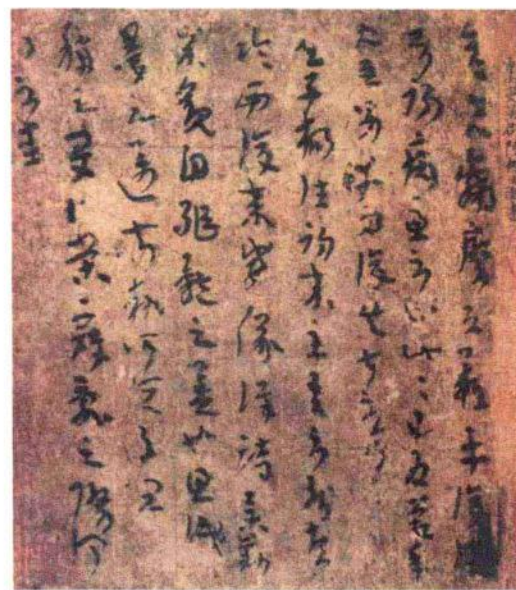 彦先羸瘵恐難平復往屬
初病慮不止此此已為慶承
使唯男幸為復失前憂耳
吳子楊往初來主吾不能盡
臨西復來威儀詳跱舉動
成觀自軀體之美也思識
量之邁前執所恒有宜
稱之夏伯榮寇亂之際聞
問不悉